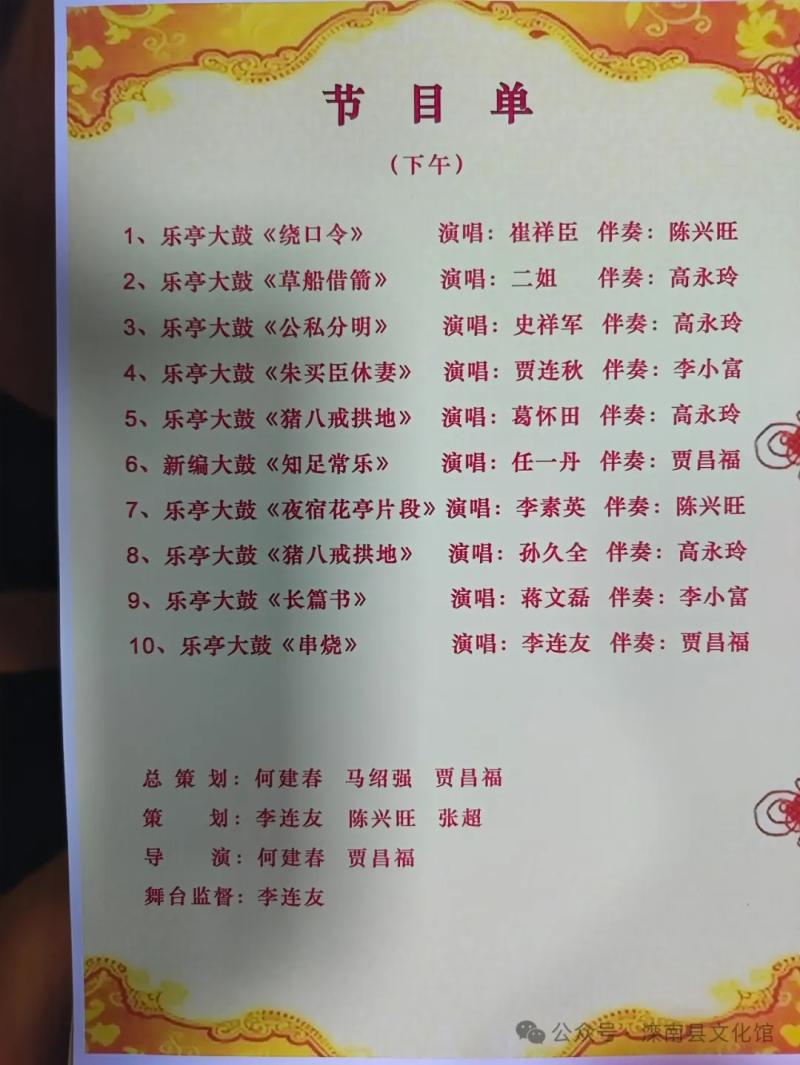 节 目 单
（下午）
1、乐亭大鼓《绕口令》 演唱：崔祥臣 伴奏：陈兴旺
2、乐亭大鼓《草船借箭》 演唱：二姐 伴奏：高永玲
3、乐亭大鼓《公私分明》 演唱：史祥军 伴奏：高永玲
4、乐亭大鼓《朱买臣休妻》 演唱：贾连秋 伴奏：李小富
5、乐亭大鼓《猪八戒拱地》 演唱：葛怀田 伴奏：高永玲
6、新编大鼓《知足常乐》 演唱：任一丹 伴奏：贾昌福
7、乐亭大鼓《夜宿花亭片段》 演唱：李素英 伴奏：陈兴旺
8、乐亭大鼓《猪八戒拱地》 演唱：孙久全 伴奏：高永玲
9、乐亭大鼓《长篇书》 演唱：蒋文磊 伴奏：李小富
10、乐亭大鼓《串烧》 演唱：李连友 伴奏：贾昌福
总 策 划：何建春 马绍强 贾昌福
策 划：李连友 陈兴旺 张超
导 演：何建春 贾昌福
舞台监督：李连友
公众号 · 滦南县文化馆